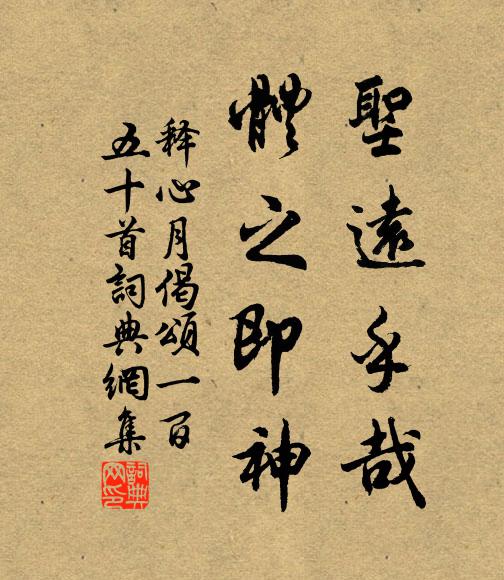 聖遠乎哉
體之即神
释心月偈頌一百
五十首詞典網集
詞典
网印